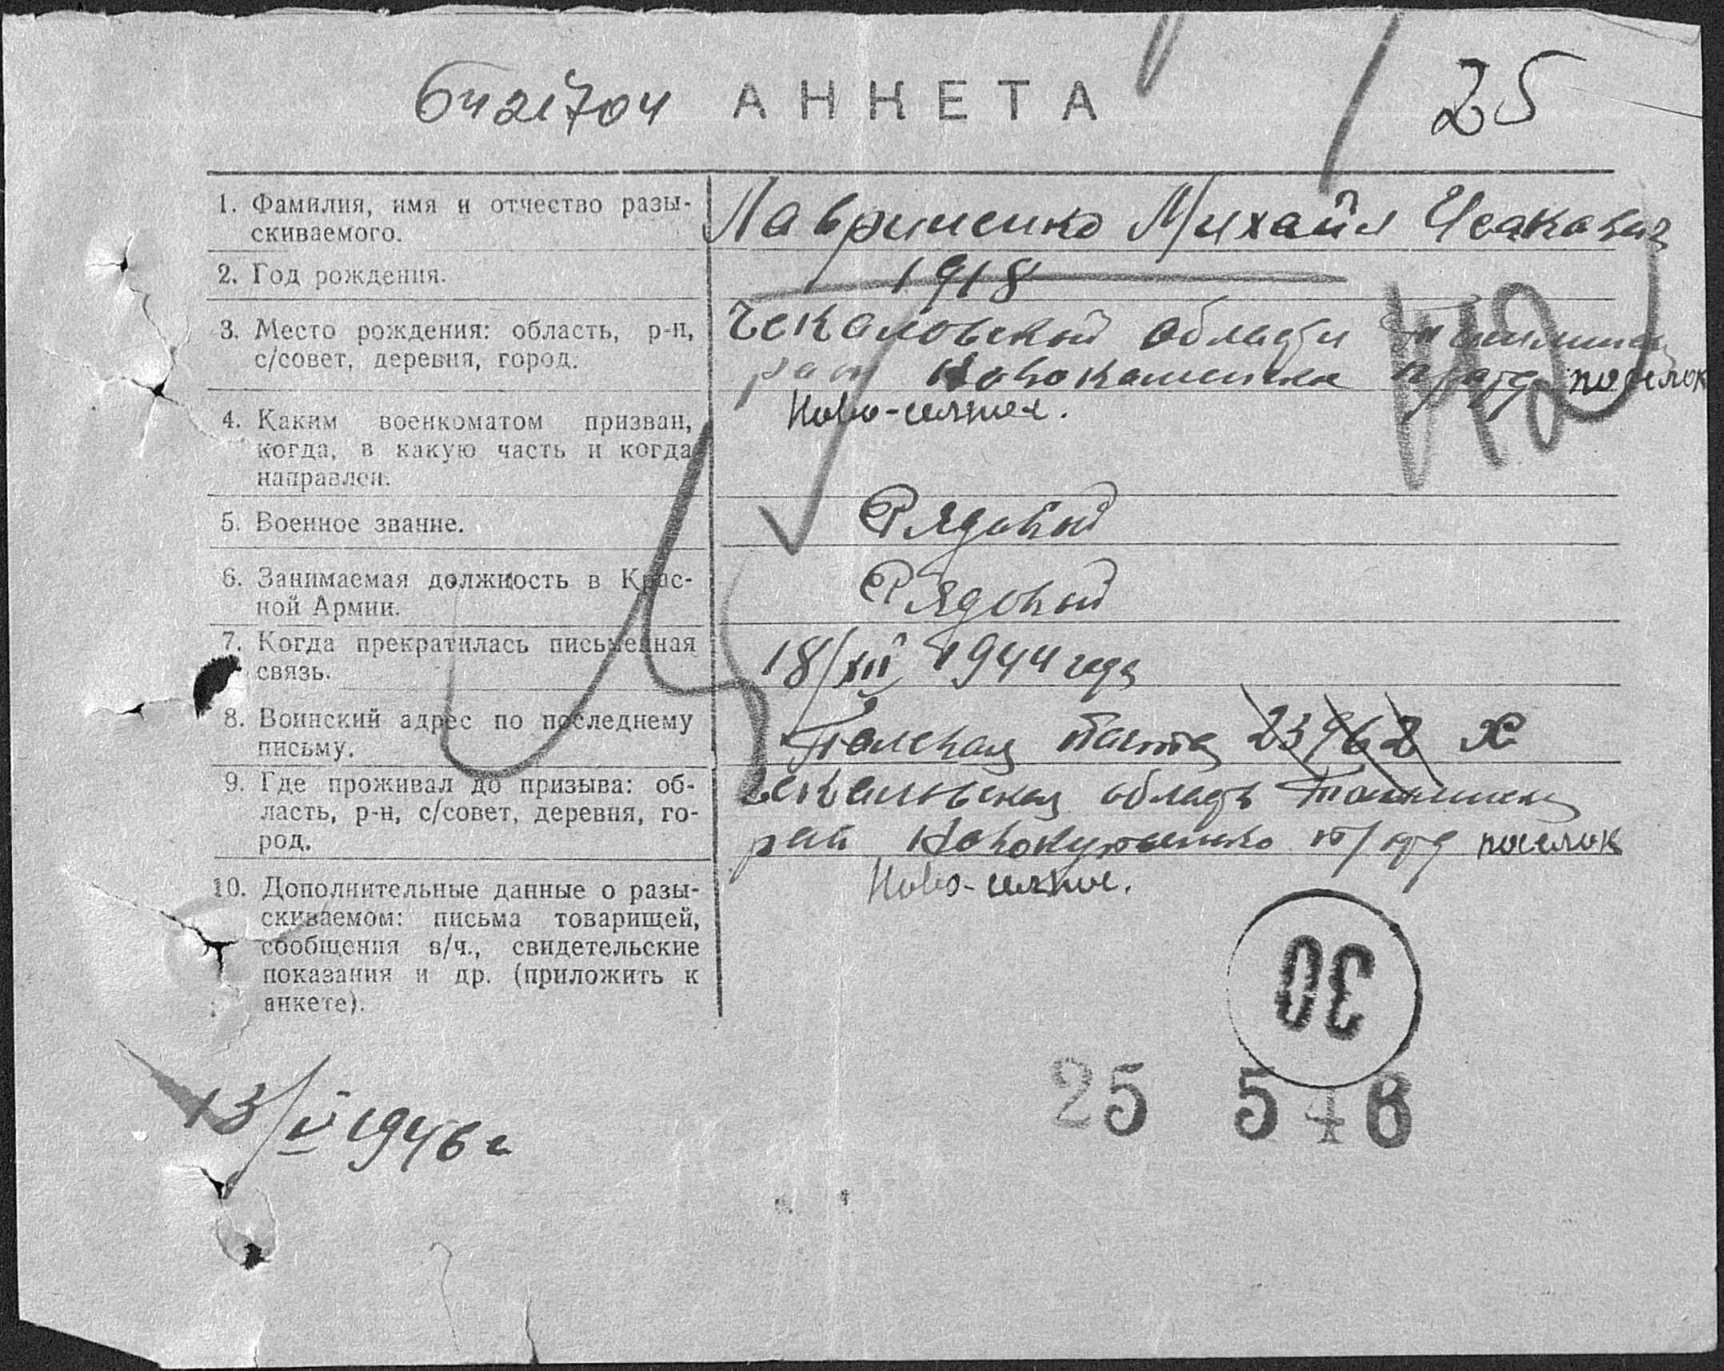 6421704 АНКЕТА 25
1. Фамилия, имя и отчество разы-
скиваемого.
Лавриненко Михайл Исакович
2. Год рождения.
1918
3. Место рождения: область, р-н,
с/совет, деревня, город.
Чкаловской области
Ново поселок
4. Каким военкоматом призван,
когда, в какую часть и когда
направлен.
5. Военное звание.
Рядовой
6. Занимаемая должность в Крас-
ной Армии.
Рядовой
7. Когда прекратилась письменная
связь.
18/XII 1944 года
8. Воинский адрес по последнему
письму.
Полевая почта 23962 Ж
9. Где проживал до призыва: об-
ласть, р-н, с/совет, деревня, го-
род.
область
поселок
10. Дополнительные данные о разы-
скиваемом: письма товарищей,
сообщения в/ч., свидетельские
показания и др. (приложить к
анкете).
30
25 546
13/V 1946 г